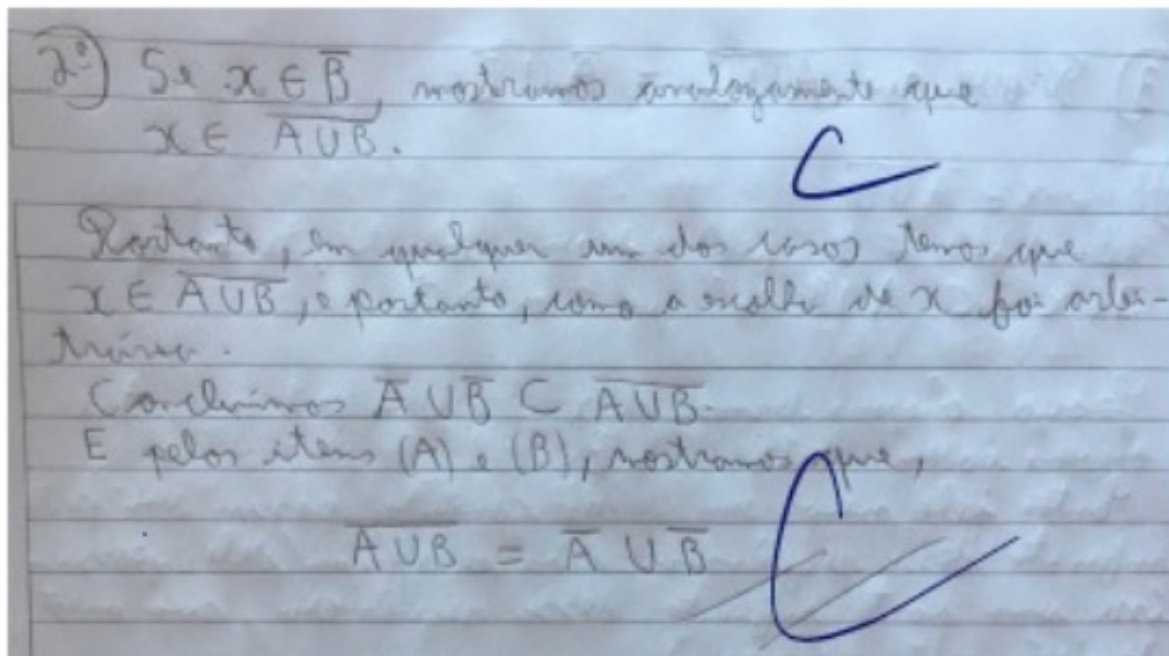 2º) Se x ∈ B̅, mostramos analogamente que
x ∈ \overline{A∪B}.
Portanto, em qualquer um dos casos temos que
x ∈ \overline{A∪B}, e portanto, como a escolha de x foi arbi-
trária.
Concluimos A̅ ∪ B̅ ⊂ \overline{A∪B}.
E pelos itens (A) e (B), mostramos que,
\overline{A∪B} = A̅ ∪ B̅